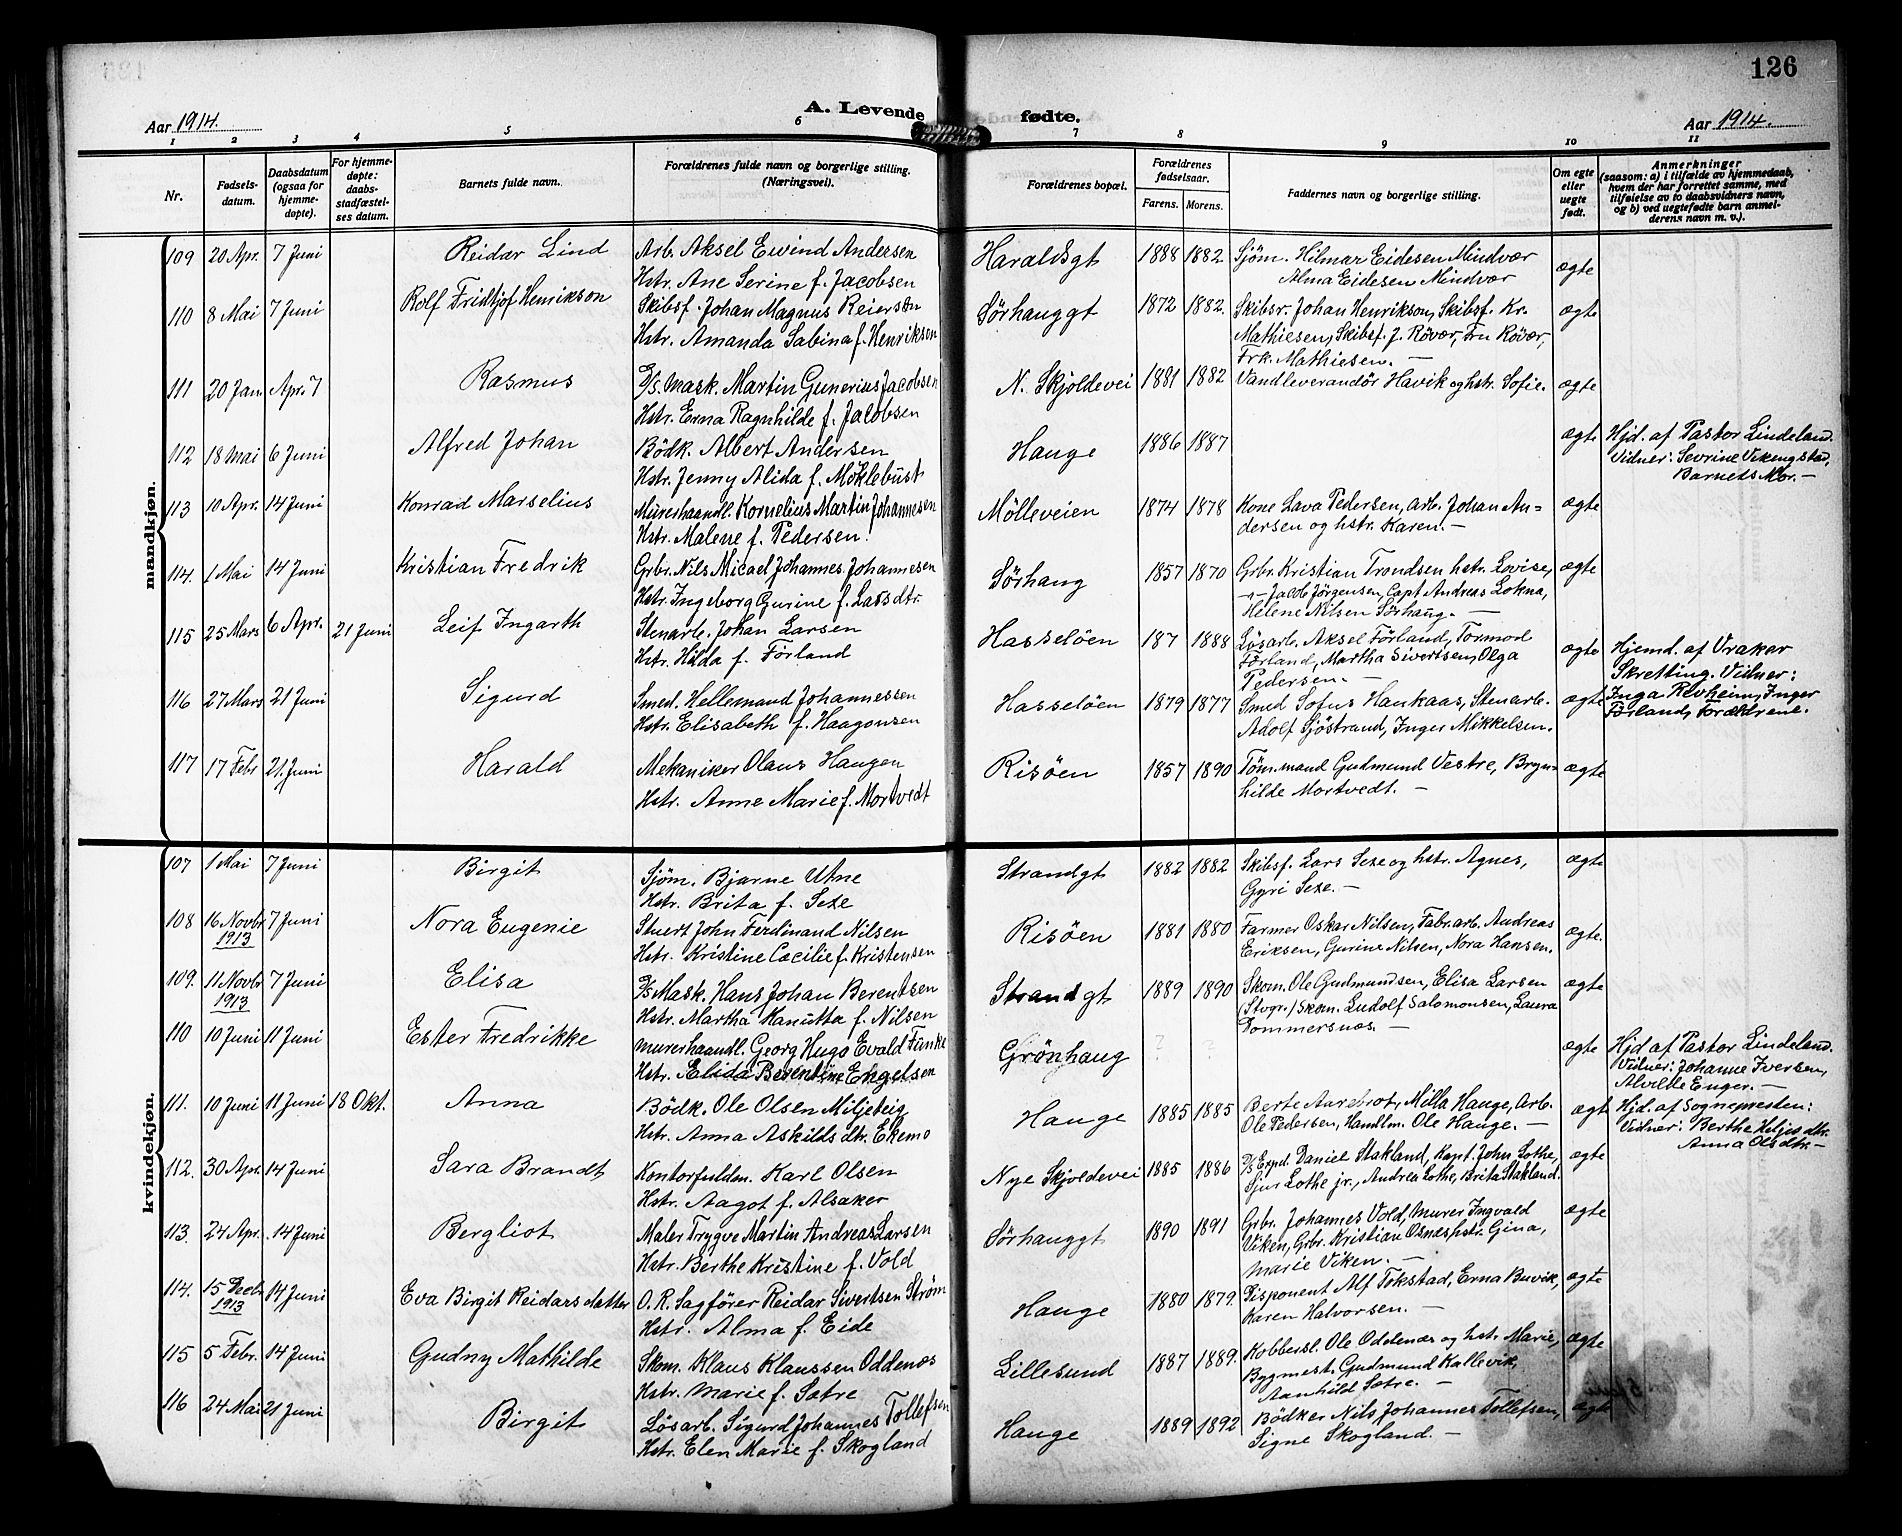 126
A. Levende fødte.
Aar 1914.
Aar 1914.
1 2 3 4 5 6 7 8 9 10 11
Nr.
Fødsels-
datum.
Daabsdatum
(ogsaa for
hjemme-
døpte).
For hjemme-
døpte:
daabs-
stadfæstel-
ses datum.
Barnets fulde navn.
Forældrenes fulde navn og borgerlige stilling.
(Næringsvei).
Forældrenes bopæl.
Forældrenes
fødselsaar.
Farens. Morens.
Faddernes navn og borgerlige stilling.
Om egte
eller
uegte
født.
Anmerkninger
(saasom: a) i tilfælde av hjemmedaab,
hvem der har forrettet samme, med
tilføielse av to daabsvidners navn,
og b) ved uegtefødte barn anmel-
derens navn m. v.).
mandkjøn.
109 20 Apr. 7 Juni Reidar Lind Arb. Aksel Eivind Andersen Haraldsgt 1888 1882 Sjøm. Hilmar Eidesen Mindvær ægte
Hstr. Ane Serine f. Jacobsen Alma Eidesen Mindvær
110 8 Mai 7 Juni Rolf Fridtjof Henrikson Skibsf. Johan Magnus Reiersen Sörhauggt 1872 1882. Skibsr. Johan Henrikson, Skibsf. Kr. ægte
Hstr. Amanda Sabina f. Henriksen Mathiesen, Skibsf. J. Rövær, Fru Rövær,
Frk. Mathiesen. —
111 20 Jan. Apr. 7 Rasmus D/S Mask. Martin Gunerius Jacobsen N. Skjoldevei 1881 1882 Vandleverandör Havik og hstr. Sofie. ægte
Hstr. Erna Ragnhilde f. Jacobsen
112 18 Mai 6 Juni Alfred Johan Bödk. Albert Andersen Hauge 1886 1887 ægte Hjd. af Pastor Lindeland.
Hstr. Jenny Alida f. Möklebust Vidner: Sevrine Vikingstad,
Barnets Mor. —
113 10 Apr. 14 Juni Konrad Marselius Murerhaandl. Kornelius Martin Johannesen Mölleveien 1874 1878 Kone Lava Pedersen, Arb. Johan An= ægte
Hstr. Malene f. Pedersen. dersen og hstr. Karen. —
114. 1 Mai 14 Juni Kristian Fredrik Grbr. Nils Micael Johannes Johannesen Sörhaug 1857 1870 Grbr. Kristian Trondsen hstr. Lovise, ægte
Hstr. Ingeborg Gurine f. Larsdtr. Jacob Jörgensen, Capt Andreas Lokna,
Helene Nilsen Sörhaug. —
115 25 Mars 6 Apr. 21 Juni Leif Ingarth Stenarb. Johan Larsen Hasselöen 187 1888 Lösarb. Aksel Förland, Tormod ægte Hjemd. af Vraker
Hstr. Hilda f. Förland Förland, Martha Sivertsen, Olga Skretting. Vidner:
Pedersen. — Inga Revheim, Inger
Förland, Forældrene.
116 27 Mars 21 Juni Sigurd Smed. Hellemand Johannessen Hasselöen 1879 1877 Smed Sofus Haukaas, Stenarb. ægte
Hstr. Elisabeth f. Haagonsen Adolf Sjöstrand, Inger Mikkelsen.
117 17 Febr 21. Juni Harald Mekaniker Olaus Haugen Risöen 1857 1890 Töm.mand Gudmund Vestre, Bryn= ægte
Hstr. Anne Marie f. Mortvedt hilde Mortvedt. —
kvindekjøn.
107 1 Mai 7 Juni Birgit Sjöm. Bjarne Utne Strandgt 1882 1882 Skibsf. Lars Sexe og hstr. Agnes, ægte
Hstr. Brita f. Sexe Gyri Sexe. —
108 16 Novbr 7 Juni Nora Eugenie Stuert John Ferdinand Nilsen Risöen 1881 1880 Farmer Oskar Nilsen, Fabr.arb. Andreas ægte.
1913 Hstr. Kristine Cæcilie f. Kristensen Eriksen, Gurine Nilsen, Nora Hansen.
109. 11 Novbr 7 Juni Elisa D/S Mask. Hans Johan Berentsen Strandgt 1889 1890 Skom. Ole Gudmundsen, Elisa Larsen ægte
1913 Hstr. Martha Hanutta f. Nilsen (Stvgr.) Skom. Ludolf Salomonsen, Laura
Dommersnæs. —
110 10 Juni 11 Juni Ester Fredrikke Murerhaandl. Georg Hugo Evald Funke Grönhaug ? ? ægte Hjd af Pastor Lindeland.
Hstr. Elida Berentine Engelsen Vidner: Johanne Iversen,
Alvilde Enger. —
111. 10 Juni 11 Juni 18 Okt. Anna Bödk. Ole Olsen Miljeteig Hauge 1885 1885 Berte Aarebrot, Milla Hauge, Arb. ægte Hjd. af Sognepresten:
Hstr. Anna Askildsdtr. Ekemo Ole Pedersen, Handlm. Ole Hauge. — Vidner: Berthe Heljesdtr.
Anna Olsdtr. —
112. 30 Apr. 14 Juni Sara Brandt Kontorfuldm. Karl Olsen Nye Skjoldevei 1885 1886 D/S Exped. Daniel Stakland, Kapt. John Lothe, ægte
Hstr. Aagot f. Alsaker Sjur Lothe jr., Andrea Lothe, Brita Stakland.
113. 24 Apr. 14 Juni Bergliot Maler Trygve Martin Andreas Larsen Sörhauggt 1890 1891 Grbr. Johannes Vold, Murer Ingvald ægte
Hstr. Berthe Kristine f. Vold Viken, Grbr. Kristian Osnes, hstr. Gina,
Marie Viken. —
114. 15 Decbr 14 Juni Eva Birgit Reidarsdatter O. R. Sagförer Reidar Sivertsen Ström Hauge 1880 1879. Disponent Alf Tokstad, Erna Buvik, ægte
1913 Hstr. Alma f. Eide Karen Halvorsen. —
115 5 Febr. 14 Juni Gudny Mathilde Skom. Klaus Klaussen Oddenæs Lillesund 1887 1889. Kobbersl. Ole Oddenæs og hstr. Marie, ægte
Hstr. Marie f. Sætre Bygmest. Gudmund Kallevik,
Aanhild Sætre. —
116 24 Mai 21 Juni Birgit Lösarb. Sigurd Johannes Tollefsen Hauge 1889 1892 Bödker Nils Johannes Tollefsen, ægte
Hstr. Elen Marie f. Skogland Signe Skogland. —